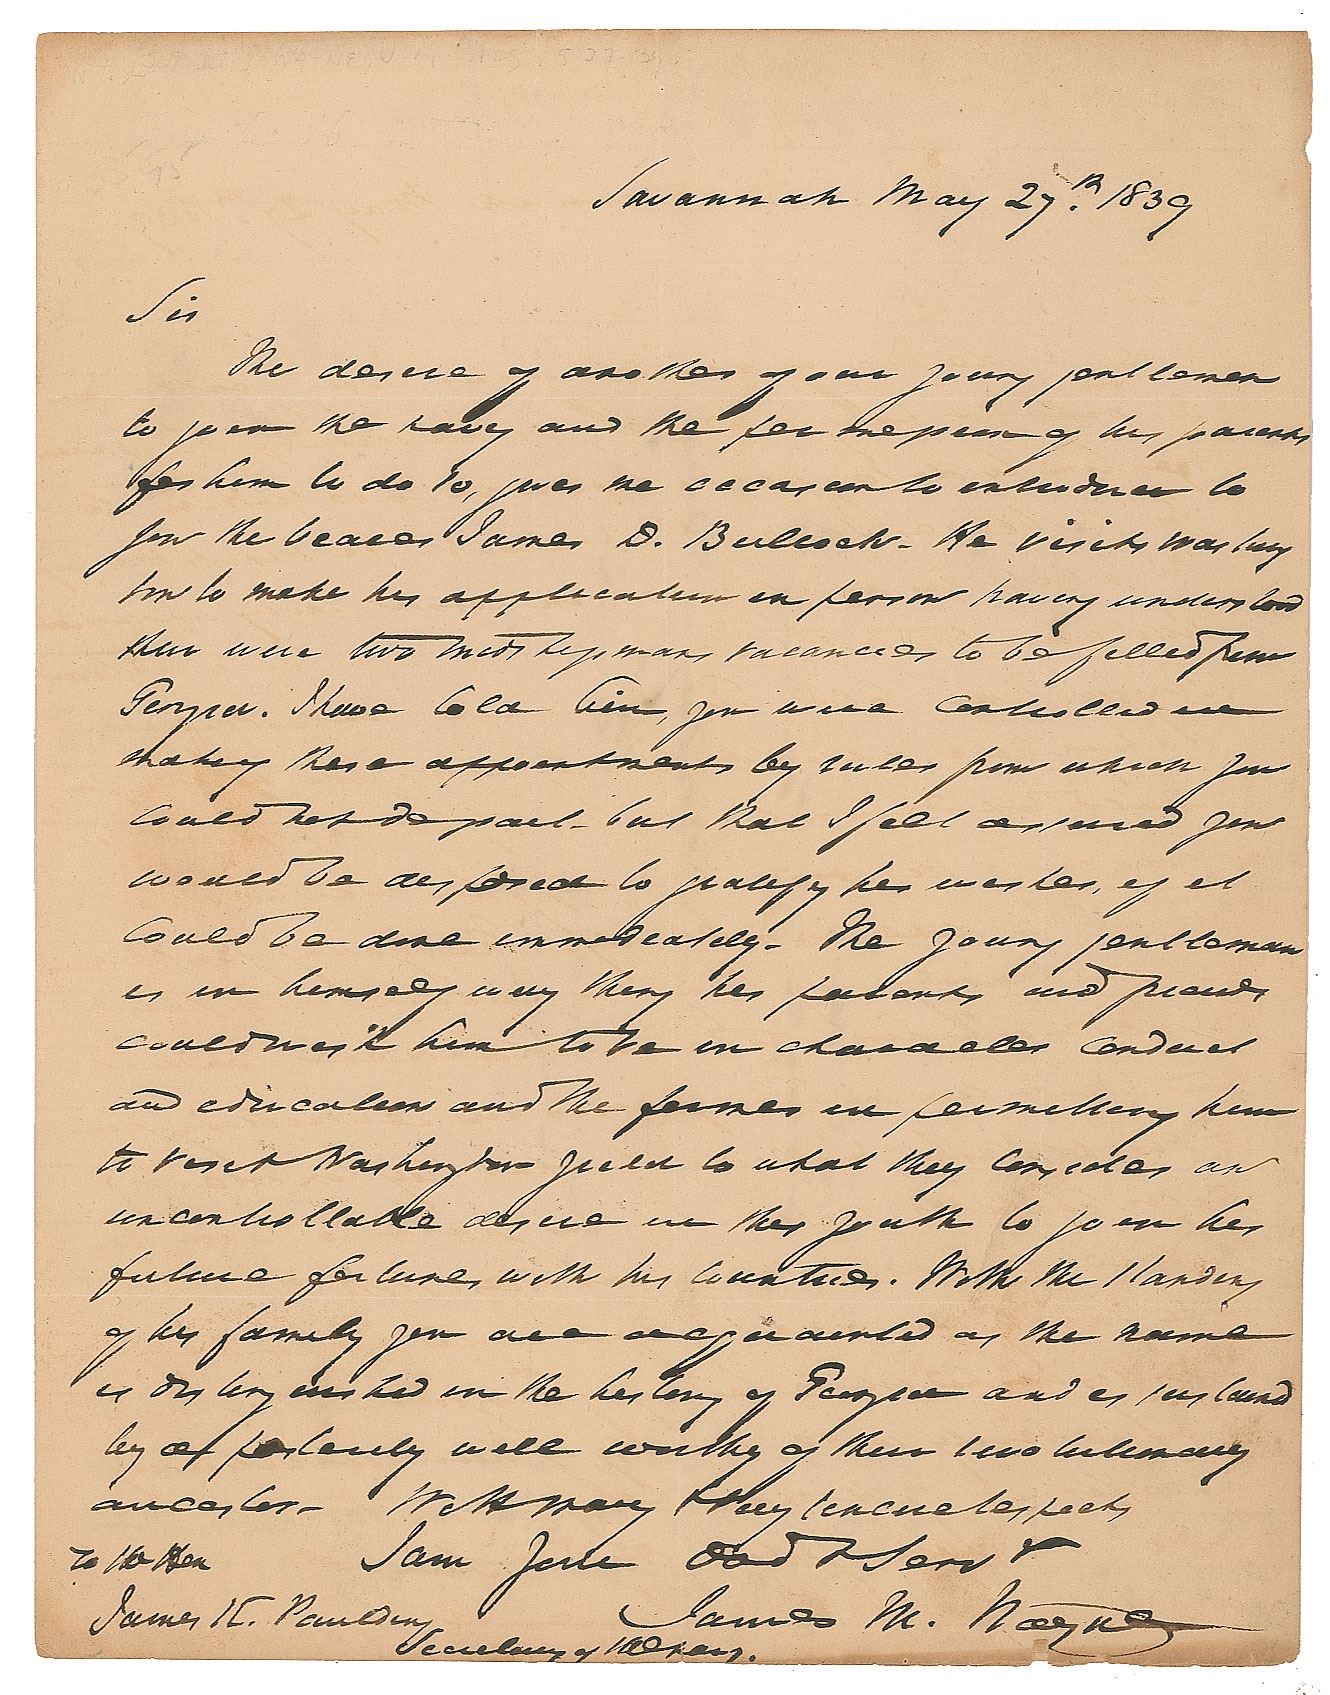 Savannah May 27th. 1839
Sir
The desire of another of our young gentlemen
to join the navy and the permission of his parents
for him to do so, gives me occasion to introduce to
you the bearer James D. Bulloch - He visits Washing
ton to make his application in person having understood
there were two midshipmans vacancies to be filled from
Georgia. I have told him, you were controlled in
making these appointments by rules from which you
could not depart - but that I felt assured you
would be disposed to gratify his wishes, if it
could be done immediately - The young gentleman
is in himself every thing his parents and friends
could wish him to be in character conduct
and education and the former in permitting him
to visit Washington yield to what they consider an
uncontrollable desire in this youth to join his
future fortunes with his countries. With the standing
of his family you are acquainted as the name
is distinguished in the history of Georgia and is sustained
by a posterity well worthy of their revolutionary
ancestor - With many & very sincere respects
I am your Obd & Servt
To the Hon
James K. Paulding
James M. Wayne
Secretary of the Navy.